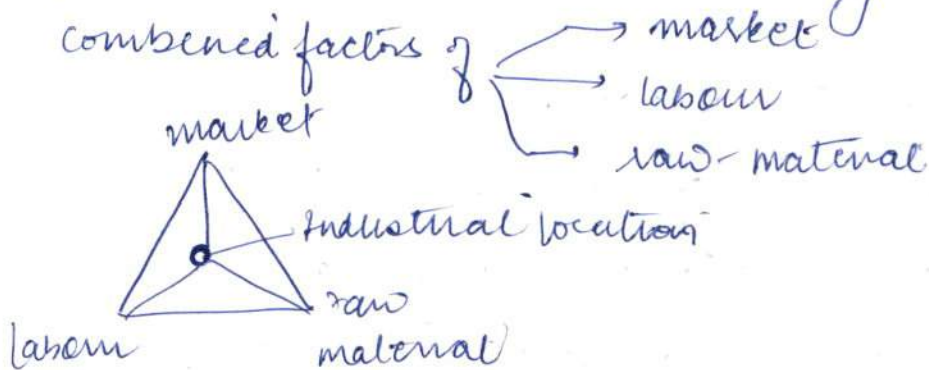 combened factors of
market
labour
raw-material
market
Industrial location
labour
raw
material